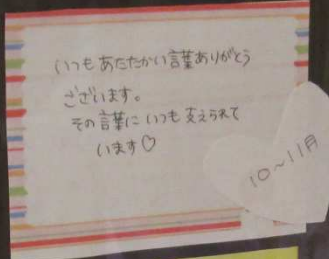 いつもあたたかい言葉ありがとう
ございます。
その言葉にいつも支えられて
います♡
10〜11月